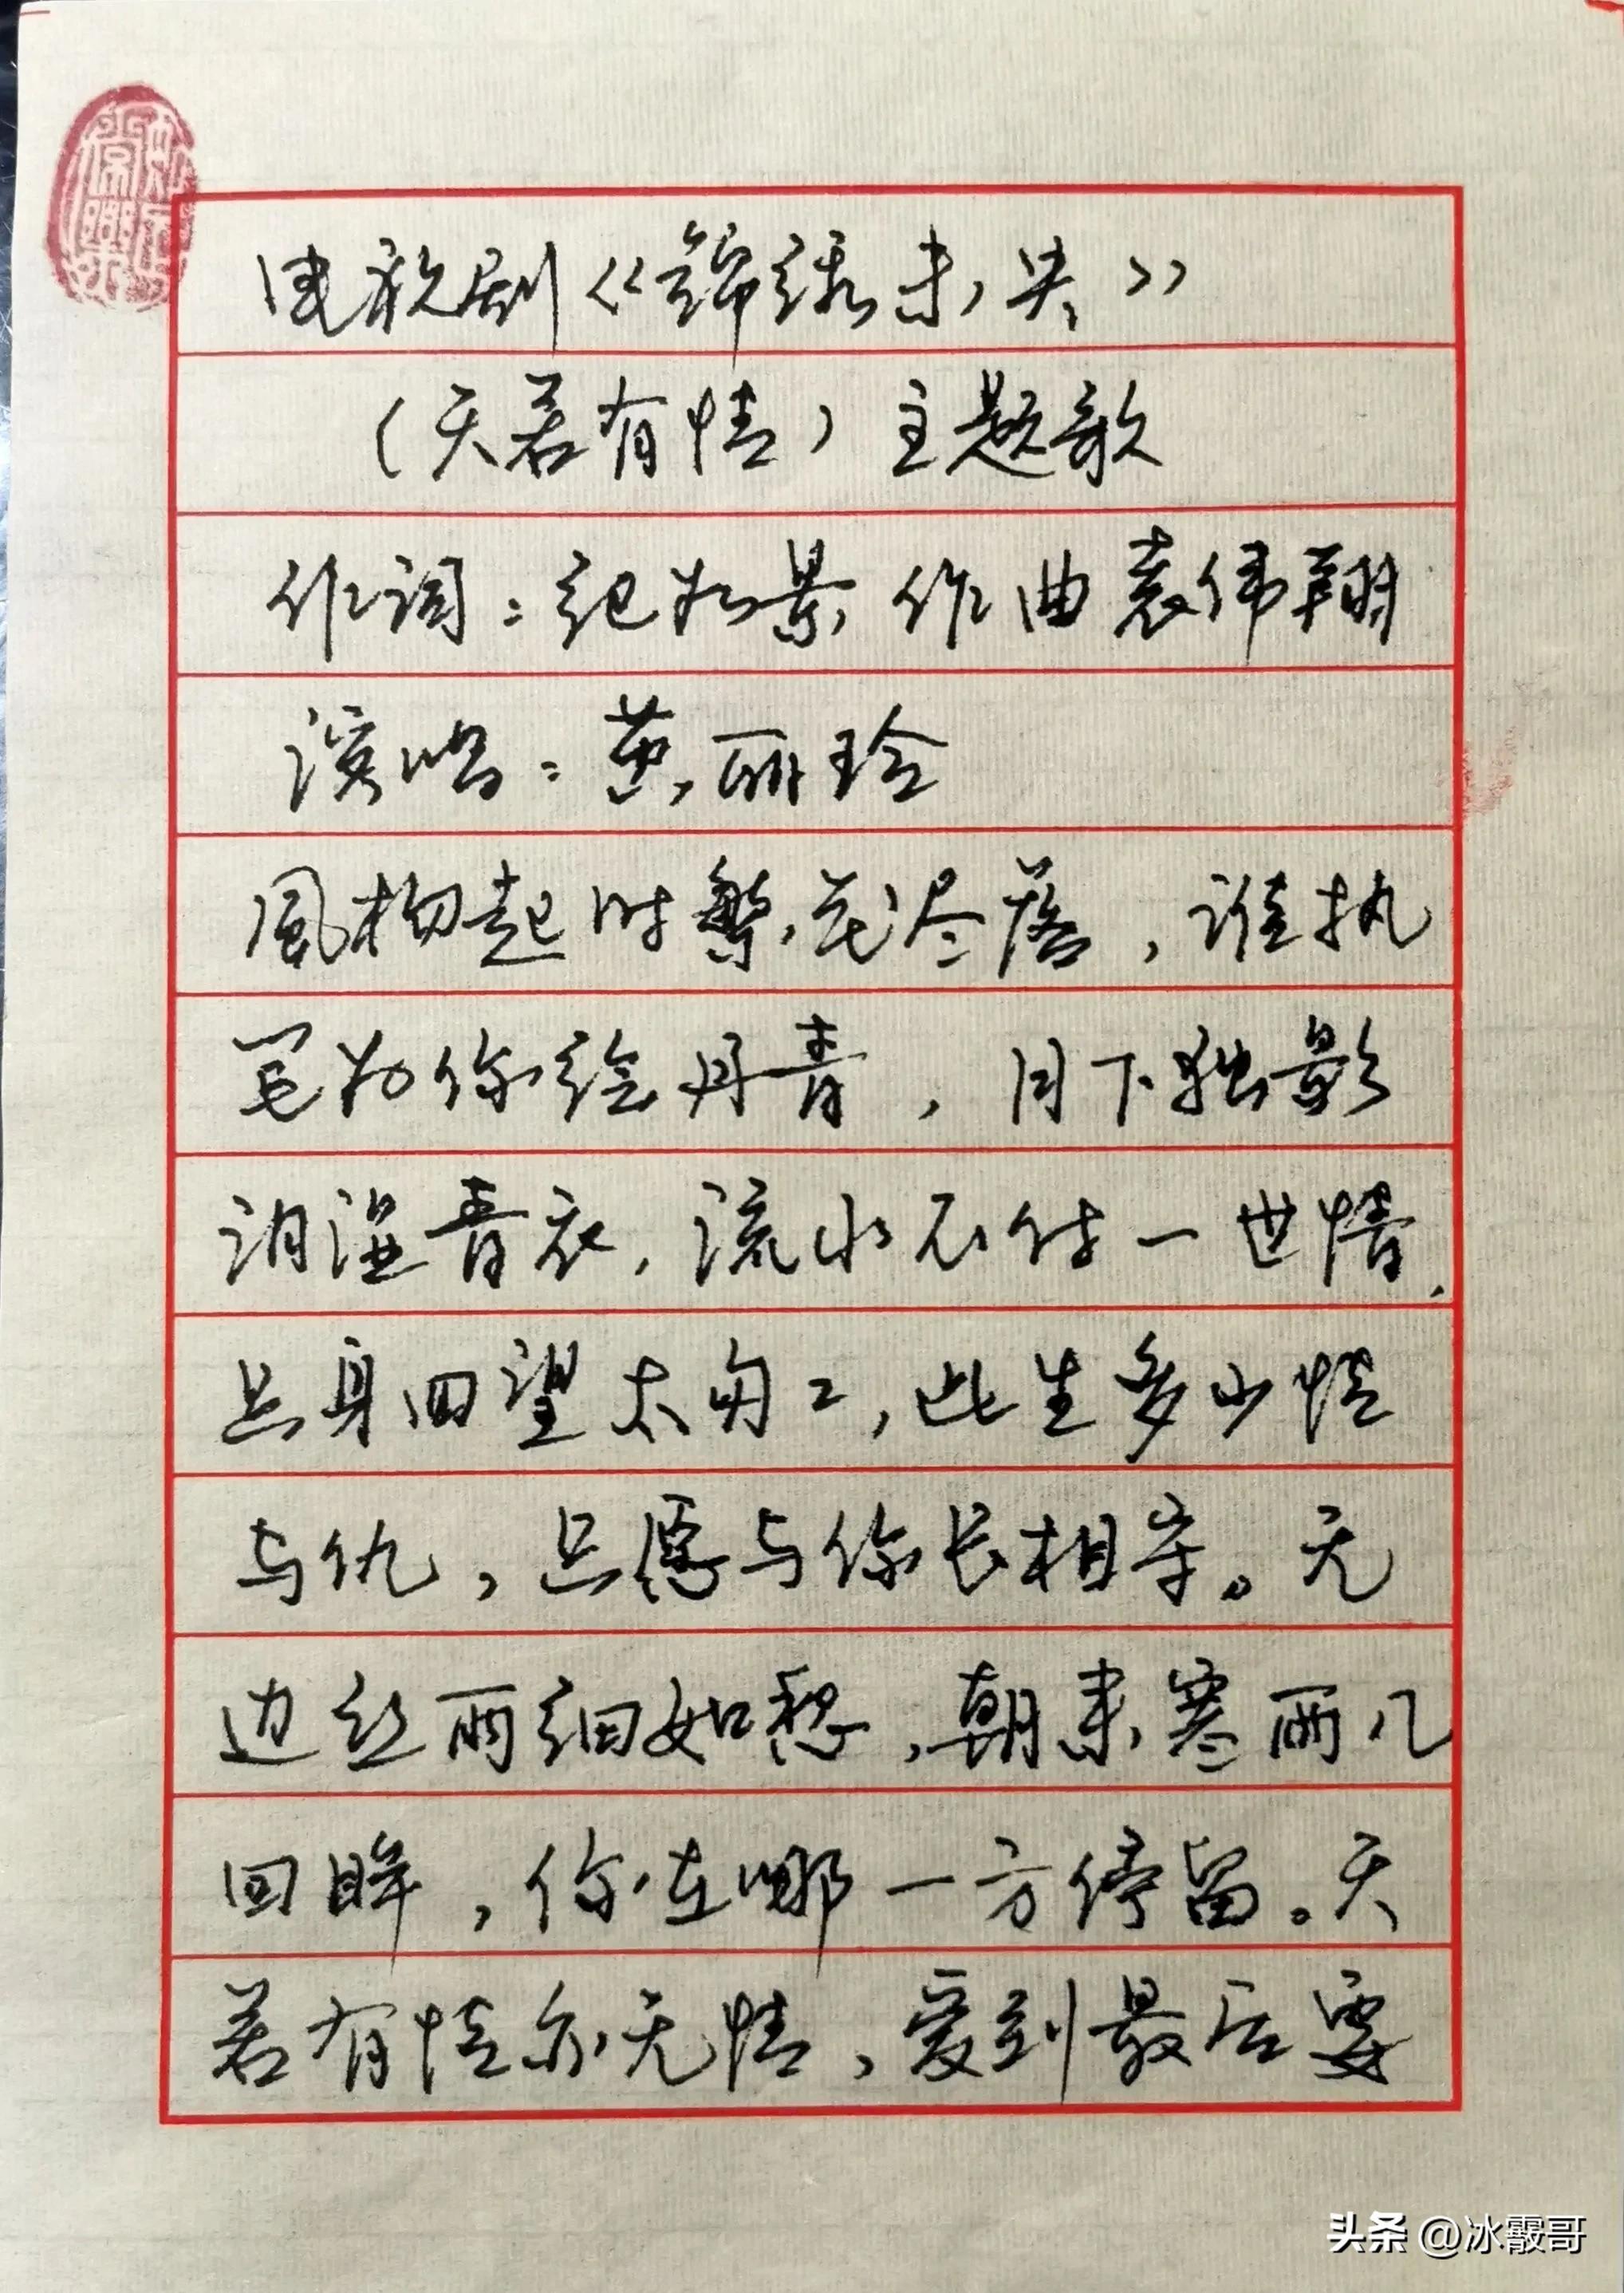 知足常乐
电视剧《锦绣未央》
(天若有情)主题歌
作词:纪如景 作曲袁伟翔
演唱:黄丽玲
風柳起时繁花尽落,谁执
笔为你绘丹青,月下独影
泪湿青衣,流水不付一世情,
只身回望太匆匆,此生多少情
与仇,只愿与你长相守。无
边丝雨细如愁,朝来寒雨几
回眸,你在哪一方停留。天
若有情亦无情,爱到最后要
头条 @冰霰哥